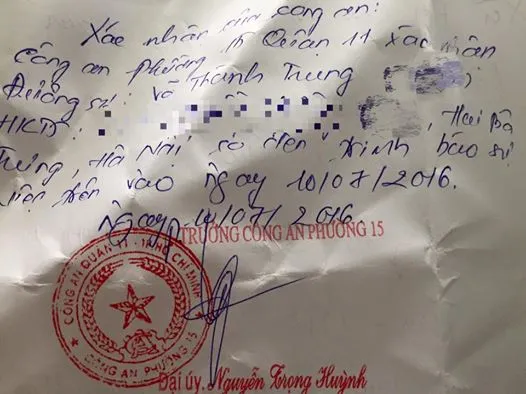 Xác nhận của công an:
Công an phường 15 Quận 11 xác nhận
Đương sự: Võ Thành Trung
HKTT: , Hai Bà
Trưng, Hà Nội có đến trình báo sự
việc trên vào ngày 10/07/2016.
Ngày 14/07/2016
TRƯỞNG CÔNG AN PHƯỜNG 15
CÔNG AN QUẬN 11 T.P HỒ CHÍ MINH
CÔNG AN PHƯỜNG 15
Đại úy. Nguyễn Trọng Huỳnh